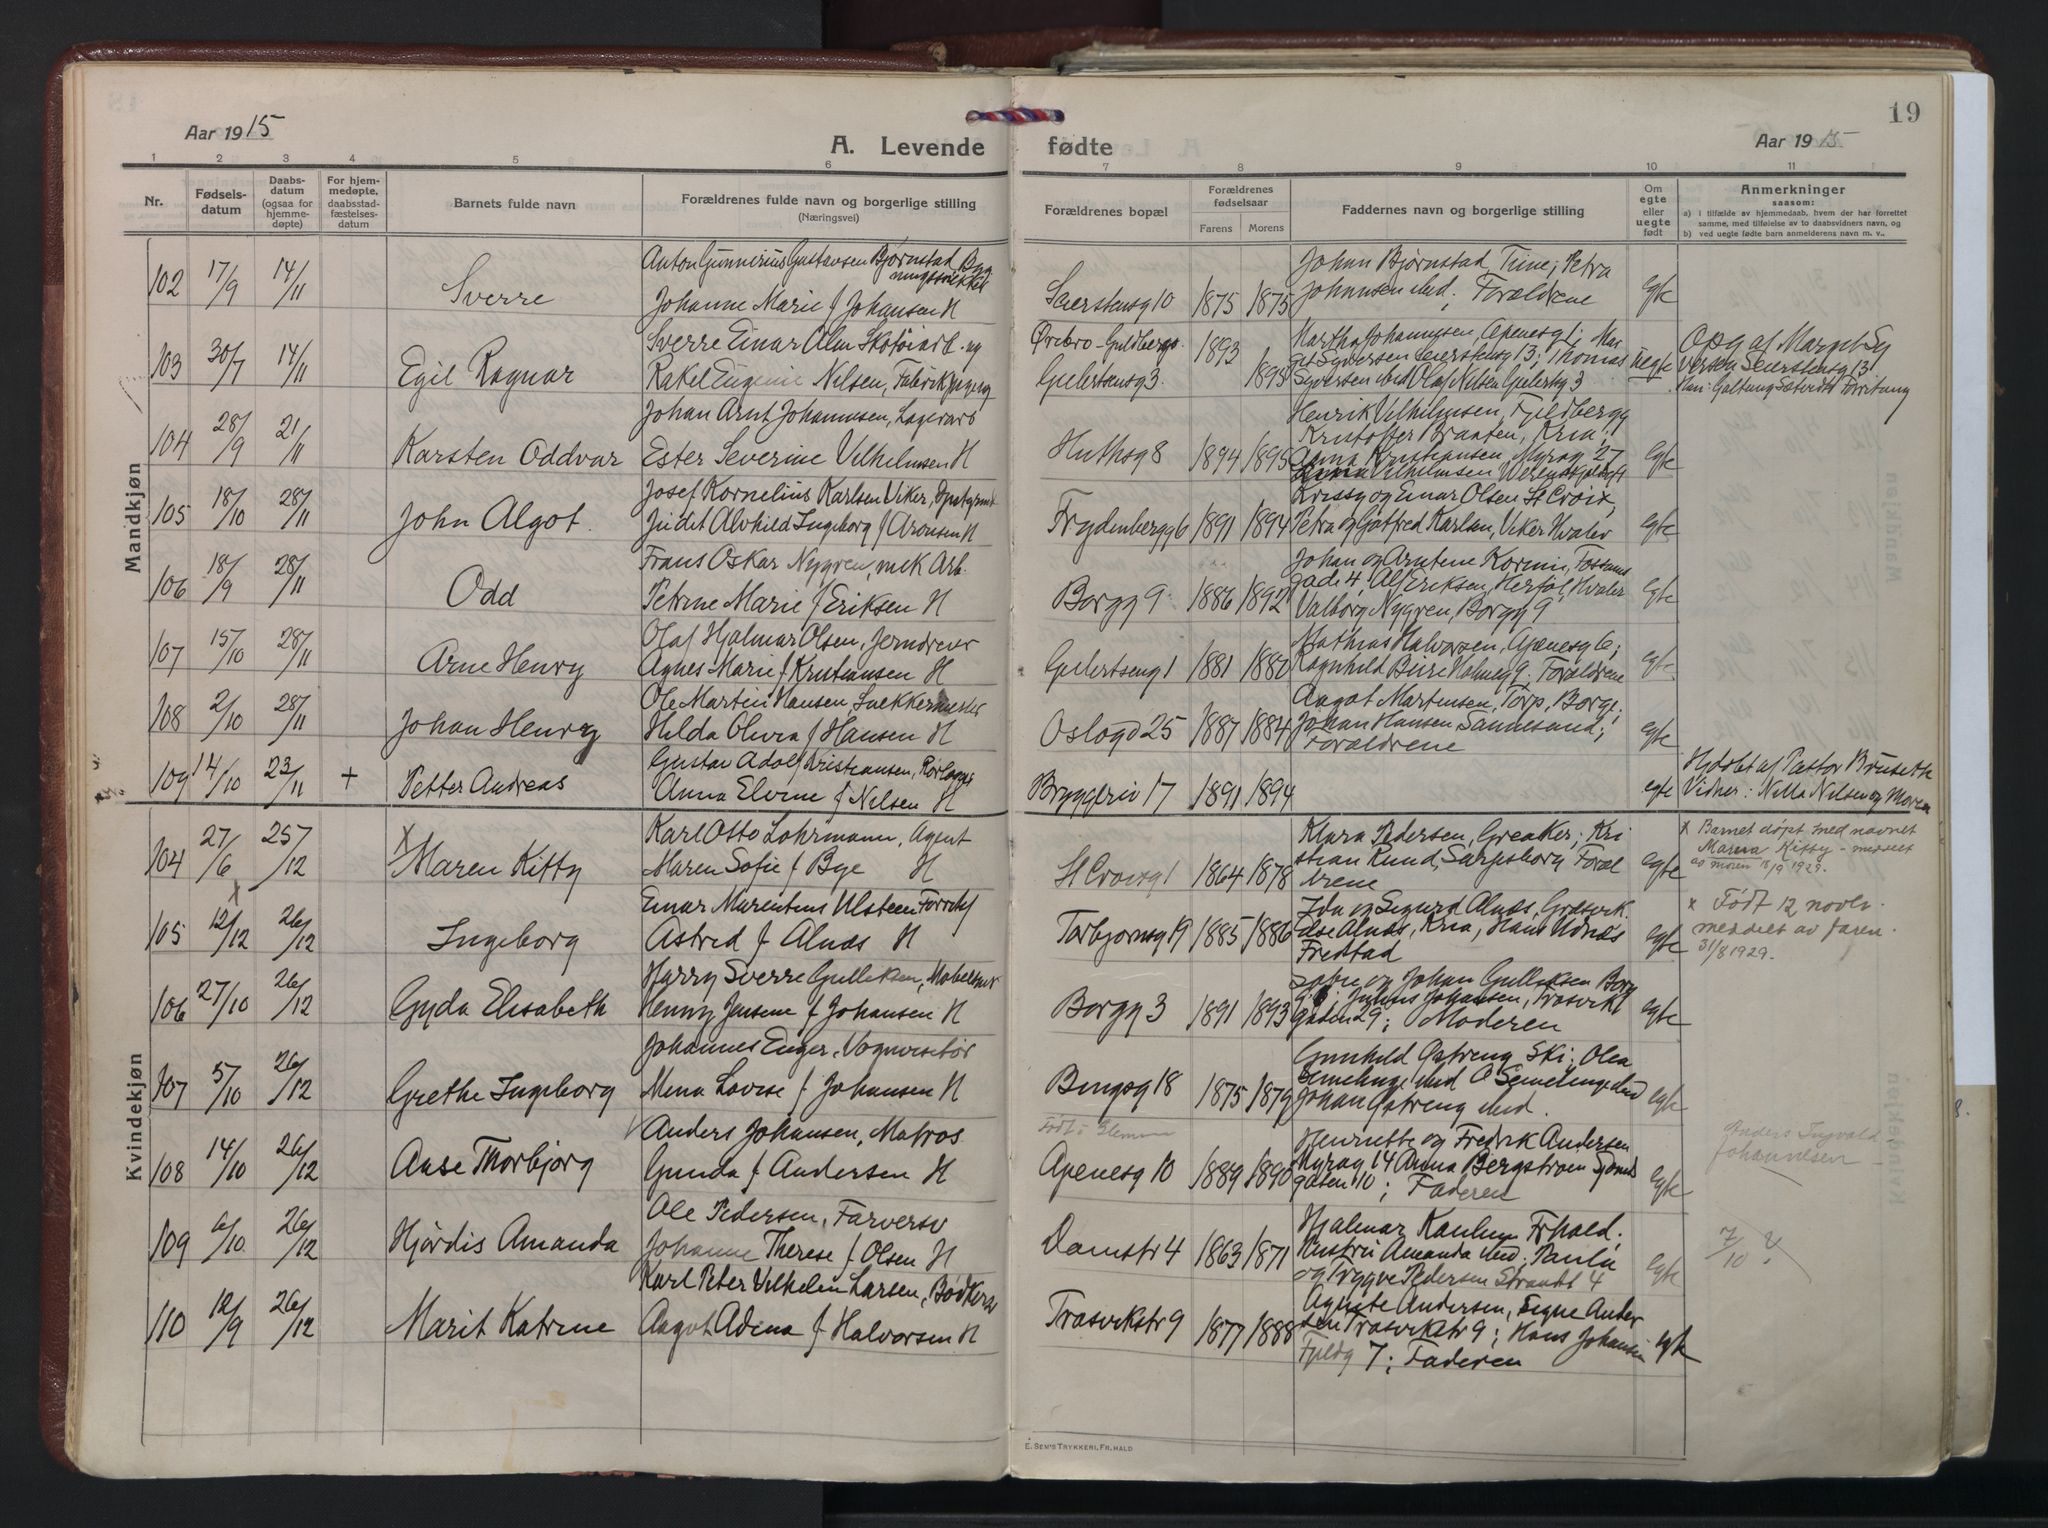 Aar 1915
A. Levende fødte
Aar 1915
19
1 2 3 4 5 6 7 8 9 10 11
Nr.
Fødsels-
datum
Daabs-
datum
(ogsaa for
hjemme-
døpte)
For hjem-
medøpte,
daabsstad-
fæstelses-
datum
Barnets fulde navn
Forældrenes fulde navn og borgerlige stilling
(Næringsvei)
Forældrenes bopæl
Forældrenes
fødselsaar
Farens Morens
Faddernes navn og borgerlige stilling
Om
egte
eller
uegte
født
Anmerkninger
saasom:
a) i tilfælde av hjemmedaab, hvem der har forrettet
samme, med tilføielse av to daabsvidners navn, og
b) ved uegte fødte barn anmelderens navn m. v.,
Mandkjøn
102 17/9 14/11 Sverre
Anton Gunnerius Gustavsen Bjørnstad, Byg
Johanne Marie f Johansen H
Seierstensg 10 1875 1875
Johan Bjørnstad, Tune; Petra
Johansen ibid; Forældrene
egte
103 30/7 14/11 Egil Ragnar
Sverre Einar Alm Skotøiarb. og
Rakel Eugenie Nilsen, Fabrik
Ørebro - Guldbergs
Gulertsensg 3. 1893 1895
Martha Johannesen, Apenesg 1; Mar
get Syversen Seierstensg 13; Thomas
Syversen ibid Olaf Nilsen Gulertsg 3
uegte
Opg af Margit Sy
versen Seierstensg 13
104 28/9 21/11 Karsten Oddvar
Johan Arnt Johannesen, Lagerarb
Ester Severine Vilhelmsen H
Huthsg 8 1894 1895
Henrik Vilhelmsen, Fjeldbergg
Kristoffer Braaten, Kria;
Anna Kristiansen, Myrag 27
Vilhelmsen
egte
105 18/10 28/11 John Algot.
Josef Kornelius Karlsen Viker,
Judit Alvhild Ingeborg f Aronsen H
Frydenbergg 6 1891 1894
Krissy og Einar Olsen St Croix,
Petra og Gotfred Karlsen, Viker Hvaler
egte
106 18/9 28/11 Odd
Frans Oskar Nygren, mek Arb.
Petrine Marie f Eriksen H
Borgg 9 1886 1892
Johan og Arntine Kornin, Fossums
gade 4, Alf Eriksen, Herføl, Hvaler
Valborg Nygren, Borgg 9
egte
107 15/10 28/11 Arne Henry
Olaf Hjalmar Olsen, Jerndreier
Agnes Marie f Kristiansen H
Gulertseng 1 1881 1880
Mathias Halvorsen, Apenesg 6;
Ragnhild Holmeg 9; Forældrene
egte
108 2/10 28/11 Johan Henry
Ole Martin Hansen, Snekkermester
Hilda Olivia f Hansen H
Oslogd 25 1887 1884
Aagot Martinsen, Torp, Borge;
Johan Hansen Sannesund;
Forældrene
egte
109 14/10 23/11 + Petter Andreas
Gustav Adolf Kristiansen, Rørlægg
Anna Elvine f Nilsen H
Bryggeriv 17 1891 1894
egte
Hjdøbt af Pastor Bruseth
Vidner: Nilla Nilsen og Moren
Kvindekjøn
104 27/6 25/12 x Maren Kitty
Karl Otto Lohrmann, Agent
Maren Sofie f Bye H
St Croixg 1 1864 1878
Klara Pedersen, Greaker; Kri
stian Rund, Sarpsborg Foræl
drene
egte
x Barnet døpt med navnet
Marna Kitty - meddelt
av moren 18/9 1929.
105 x 12/12 26/12 Ingeborg
Einar Marentius Ulsteen Forretsf
Astrid f Alnæs H
Torbjørnsg 19 1885 1886
Ida og Sigurd Alnæs, Græsvik.
Else Alnæs, Kria, Hans Alnæs
Fredstad
egte
x Født 12 novbr.
meddelt av faren.
31/8 1929.
106 27/10 26/12 Gyda Elisabeth
Harry Sverre Gulleksen, Møbelsnk
Henny Jensine f Johansen H
Borgg 3 1891 1893
Sofie og Johan Gulleksen Borg
g. 6; Julius Johansen, Trosvikl
gaden 29; Moderen
egte
107 5/10 26/12 Grethe Ingeborg
Johannes Enger, Vognvisitør
Mina Lovise f Johansen H
Bingsg 18 1875 1879
Gunhild Østreng Ski; Olea
Semelenge ibid O Semelenge ibid
Johan Østreng ibid.
egte
108 14/10 26/12 Aase Thorbjørg
Anders Johansen, Matros
Gunda f Andersen H
Født i Glemm
Apenesg 10 1889 1890
Henriette og Fredrik Andersen
Myrag 14 Anna Bergstrøm
gaten 10; Faderen
egte
Anders Ingvald
Johannesen
109 6/10 26/12 Hjørdis Amanda
Ole Pedersen, Farversv
Johanne Therese f Olsen H
Damstr 4 1863 1871
Hjalmar Karlsen Frhald;
Amanda ibid; Paula
og Trygve Pedersen Strandt 4
egte
7/10 ?
110 12/9 26/12 Marit Katrine
Karl Peter Vilhelm Larsen, Bødkersv
Aagot Adina f Halvorsen H
Trosvikstr 9 1877 1888
Agnete Andersen, Signe Ander
sen Trosvikstr 9; Hans Johansen
Fjeldg 7; Faderen
egte
E. SEM'S TRYKKERI, FR.HALD